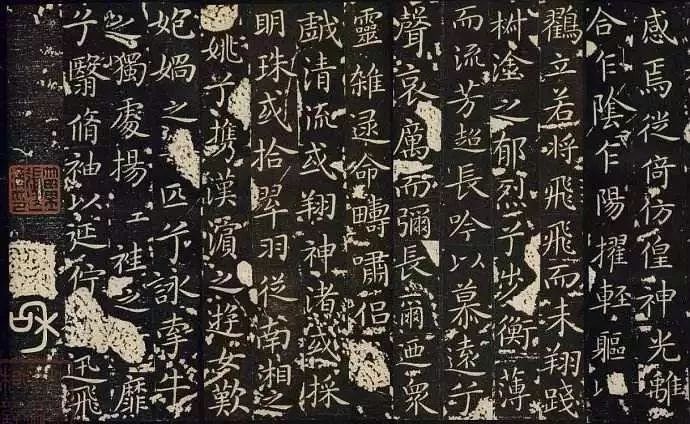 感焉徙倚彷徨神光離
合乍陰乍陽擢輕軀以
鸛立若將飛飛而未翔踐
椒塗之郁烈兮步衡薄
而流芳超長吟以慕遠兮
聲哀厲而彌長爾迺衆
靈雜遝命疇嘯侶
戲清流或翔神渚或採
明珠或拾翠羽從南湘之
姚兮攜漢濱之遊女歎
媧之匹兮詠牽牛
之獨處揚袿之靡
兮翳脩袖以延佇迅飛